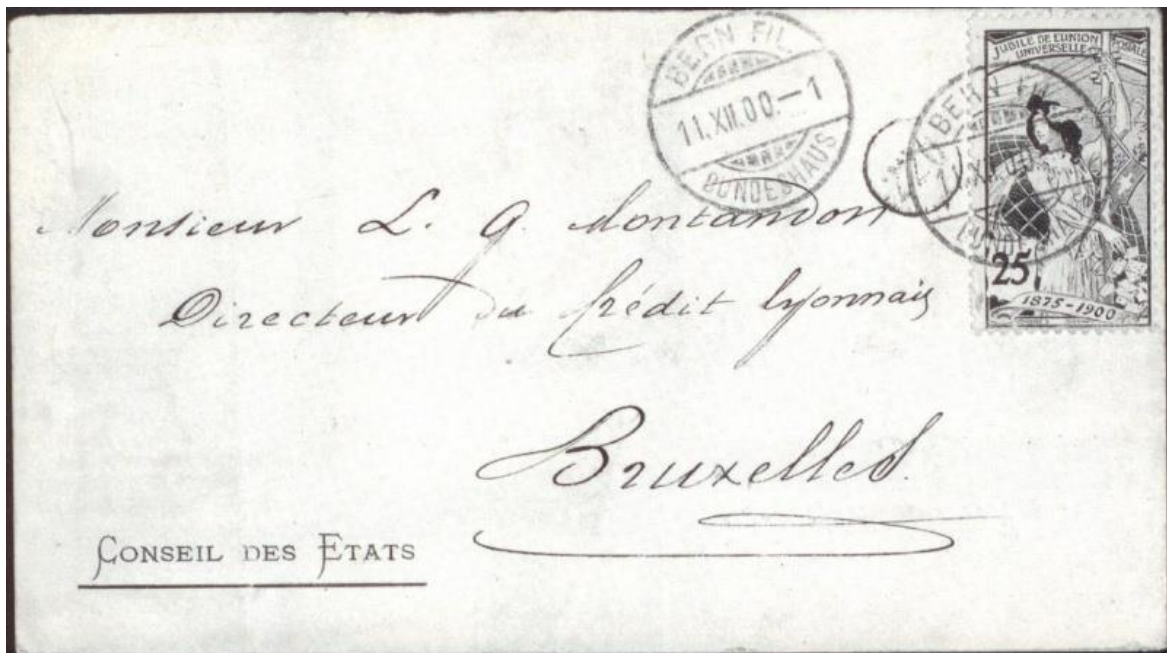 BERN FIL.
11.XII.00.-1
BUNDESHAUS
JUBILÉ DE L'UNION POSTALE
UNIVERSELLE
BERN FIL
11.XII.00
25
1875-1900
Monsieur L. G. Montandon
Directeur du Crédit Lyonnais
Bruxelles.
CONSEIL DES ETATS